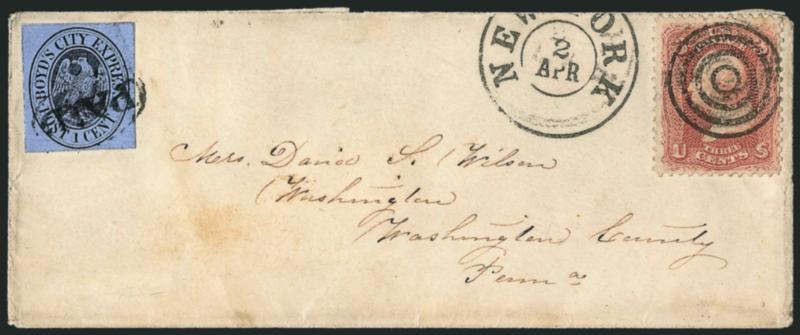 BOYD'S CITY EXPRESS
POST 1 CENT
PAID
NEW YORK
2
APR
THREE
CENTS
U S
Mrs. David S. Wilson
Washington
Washington County
Penna